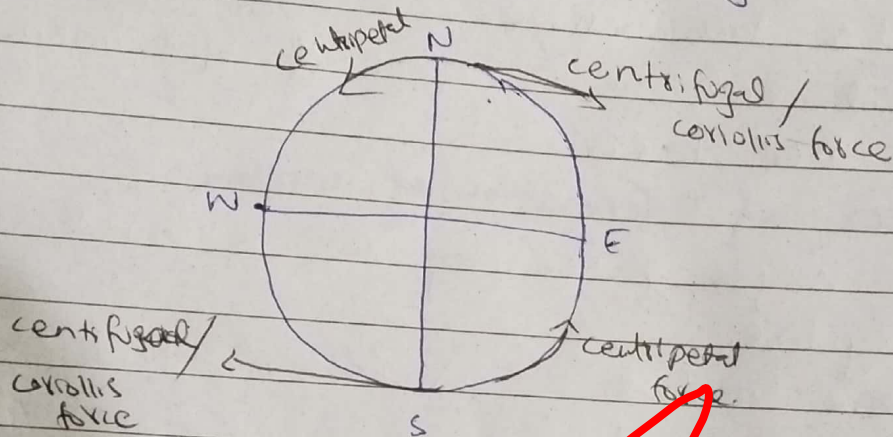 centripetal
N
centrifugal /
coriollis force
W
E
centrifugal/
coriollis
force
centripetal
force.
S